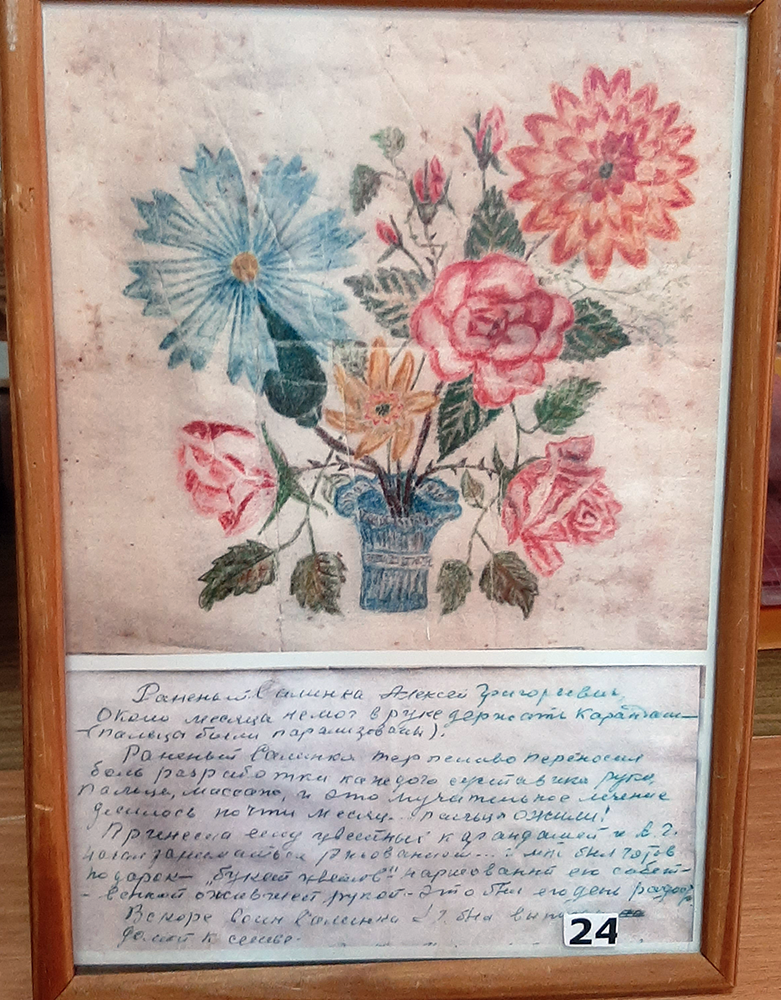 Раненый Салинка Алексей Григорьевич,
Около месяца немог в руке держать карандаш
(пальцы были парализованы).
Раненый Салинка терпеливо переносил
боль разработки каждого суставчика руки,
пальцев, массаж, и это мучительное лечение
длилось почти месяц... пальцы ожили!
Принесла ему цветных карандашей и А. Г.
начал заниматься рисованием... и мне был готов
подарок - "букет цветов" нарисованн его собст-
венной ожившей рукой - это был его день радости
Вскоре воин Салинка А. Г. был
домой к семье.
24